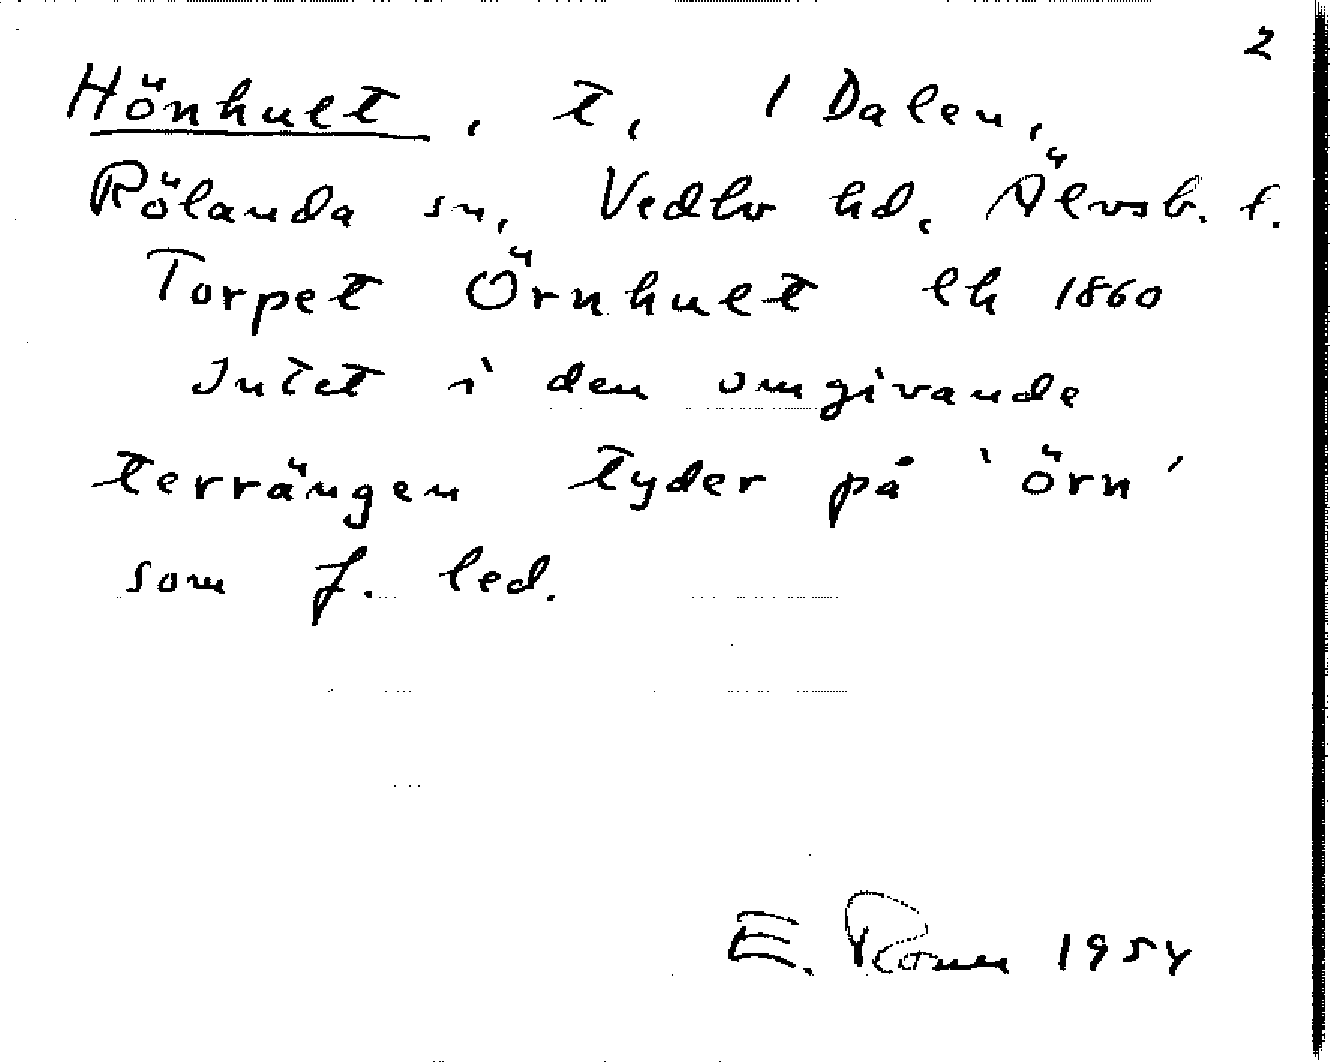 2
Hönhult, t, 1 Dalen,
Rölanda sn, Vedbo hd, Älvsb. l.
Torpet Örnhult lh 1860
Intet i den omgivande
terrängen tyder på 'örn'
som f. led.
E. 1954